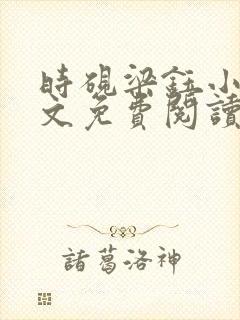 時硯梁鈺小
文免費閱讀
諸葛洛神